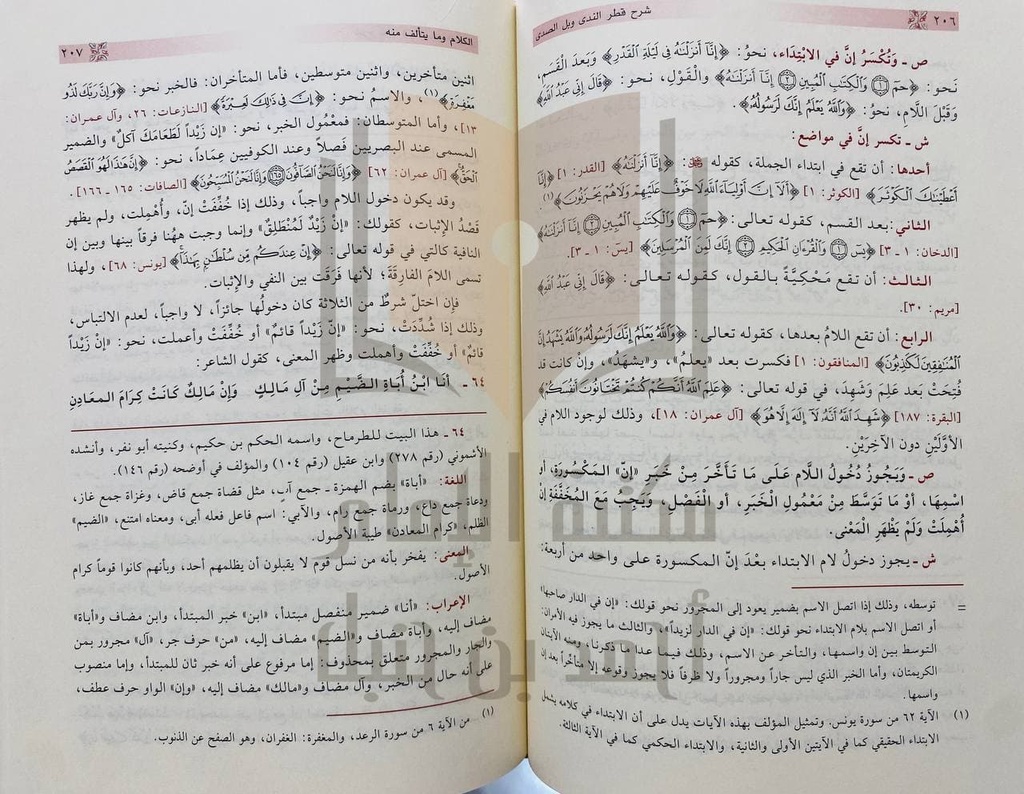 ٢٠٦ شرح قطر الندى وبل الصدى
ص ـ وَتُكْسَرُ إنَّ في الابْتِدَاء، نحوُ: ﴿إِنَّا أَنزَلْنَٰهُ فِى لَيْلَةِ ٱلْقَدْرِ﴾ وَبَعدَ القَسَمِ،
نَحوُ: ﴿حمٓ ۝١ وَٱلْكِتَٰبِ ٱلْمُبِينِ ۝٢ إِنَّآ أَنزَلْنَٰهُ﴾ والْقَوْلِ، نحو: ﴿قَالَ إِنِّى عَبْدُ ٱللَّهِ﴾
وَقَبْلَ اللَّامِ، نحوُ: ﴿وَٱللَّهُ يَعْلَمُ إِنَّكَ لَرَسُولُهُۥ﴾.
ش ـ تكسر إنَّ في مواضع:
أحدها: أن تقع في ابتداء الجملة، كقوله ﷻ: ﴿إِنَّآ أَنزَلْنَٰهُ﴾ [القدر: ١] ﴿إِنَّآ
أَعْطَيْنَٰكَ ٱلْكَوْثَرَ﴾ [الكوثر: ١] ﴿أَلَآ إِنَّ أَوْلِيَآءَ ٱللَّهِ لَا خَوْفٌ عَلَيْهِمْ وَلَا هُمْ يَحْزَنُونَ﴾(١).
الثاني: بعد القسم، كقوله تعالى: ﴿حمٓ ۝١ وَٱلْكِتَٰبِ ٱلْمُبِينِ ۝٢ إِنَّآ أَنزَلْنَٰهُ﴾
[الدخان: ١ ـ ٣] ﴿يسٓ ۝١ وَٱلْقُرْءَانِ ٱلْحَكِيمِ ۝٢ إِنَّكَ لَمِنَ ٱلْمُرْسَلِينَ﴾ [يسٓ: ١ ـ ٣].
الثالث: أن تقع مَحْكِيَّةً بالقول، كقوله تعالى: ﴿قَالَ إِنِّى عَبْدُ ٱللَّهِ﴾
[مريم: ٣٠].
الرابع: أن تقع اللامُ بعدها، كقوله تعالى: ﴿وَٱللَّهُ يَعْلَمُ إِنَّكَ لَرَسُولُهُۥ وَٱللَّهُ يَشْهَدُ إِنَّ
ٱلْمُنَٰفِقِينَ لَكَٰذِبُونَ﴾ [المنافقون: ١] فكسرت بعد «يعلمُ»، و«يشهدُ»، وإنْ كانت قد
فُتِحَتْ بعد عَلِمَ وشَهِدَ، في قوله تعالى: ﴿عَلِمَ ٱللَّهُ أَنَّكُمْ كُنتُمْ تَخْتَانُونَ أَنفُسَكُمْ﴾
[البقرة: ١٨٧] ﴿شَهِدَ ٱللَّهُ أَنَّهُۥ لَآ إِلَٰهَ إِلَّا هُوَ﴾ [آل عمران: ١٨]، وذلك لوجود اللام في
الأوَّلَيْنِ دون الآخِرَيْنِ.
ص ـ وَيَجوزُ دُخُولُ اللَّامِ عَلَى مَا تَأَخَّرَ مِنْ خَبَرِ «إِنَّ» المَكْسُورَةِ، أو
اسْمِهَا، أوْ مَا تَوَسَّطَ مِنْ مَعْمُولِ الْخَبَرِ، أوِ الْفَصْلِ، وَيَجِبُ مَعَ المُخَفَّفَةِ إنْ
أُهْمِلَتْ وَلَمْ يَظْهَرِ الْمَعْنَى.
ش ـ يجوز دخولُ لام الابتداء بعْدَ إنّ المكسورة على واحد من أربعة:
= توسطه، وذلك إذا اتصل الاسم بضمير يعود إلى المجرور نحو قولك: «إن في الدار صاحبها»
أو اتصل الاسم بلام الابتداء نحو قولك: «إن في الدار لزيداً»، والثالث ما يجوز فيه الأمران:
التوسط بين إن واسمها، والتأخر عن الاسم، وذلك فيما عدا ما ذكرنا، ومنه الآيتان
الكريمتان، وأما الخبر الذي ليس جاراً ومجروراً ولا ظرفاً فلا يجوز وقوعه إلا متأخراً بعد إن
واسمها.
(١) الآية ٦٢ من سورة يونس. وتمثيل المؤلف بهذه الآيات يدل على أن الابتداء في كلامه يشمل
الابتداء الحقيقي كما في الآيتين الأولى والثانية، والابتداء الحكمي كما في الآية الثالثة.
الكلام وما يتألف منه ٢٠٧
اثنين متأخرين، واثنين متوسطين، فأما المتأخران: فالخبر نحو: ﴿وَإِنَّ رَبَّكَ لَذُو
مَغْفِرَةٍ﴾(١)، والاسمُ نحو: ﴿إِنَّ فِى ذَٰلِكَ لَعِبْرَةً﴾ [النازعات: ٢٦، وآل عمران:
١٣]، وأما المتوسطان: فمعْمُول الخبر، نحو: «إن زَيْداً لَطَعَامَكَ آكلٌ» والضمير
المسمى عند البصريين فَصلاً وعند الكوفيين عِمَاداً، نحو: ﴿إِنَّ هَٰذَا لَهُوَ ٱلْقَصَصُ
ٱلْحَقُّ﴾ [آل عمران: ٦٢] ﴿وَإِنَّا لَنَحْنُ ٱلصَّآفُّونَ ۝١٦٥ وَإِنَّا لَنَحْنُ ٱلْمُسَبِّحُونَ﴾ [الصافات: ١٦٥ ـ ١٦٦].
وقد يكون دخول اللام واجباً، وذلك إذا خُفِّفَتْ إنَّ، وأُهْمِلت، ولم يظهر
قَصْدُ الإثبات، كقولك: «إنْ زَيْدٌ لَمُنْطَلِقٌ» وإنما وجبت ههُنا فرقاً بينها وبين إن
النافية كالتي في قوله تعالى: ﴿إِنْ عِندَكُم مِّن سُلْطَٰنٍۭ بِهَٰذَآ﴾ [يونس: ٦٨]، ولهذا
تسمى اللامَ الفارِقَةَ؛ لأنها فَرَقَتْ بين النفي والإثبات.
فإن اختلَّ شرطٌ من الثلاثة كان دخولُها جائزاً، لا واجباً، لعدم الالتباس،
وذلك إذا شُدِّدَتْ، نحو: «إنّ زَيْداً قائمٌ» أو خُفِّفَتْ وأعملت، نحو: «إنْ زَيْداً
قائمٌ» أو خُفِّفَتْ وأهملت وظهر المعنى، كقول الشاعر:
٦٤ ـ أَنَا ابْنُ أُبَاةِ الضَّيْمِ مِنْ آلِ مَالِكٍ وَإِنْ مَالِكٌ كَانَتْ كِرَامَ الْمعَادِنِ
٦٤ ـ هذا البيت للطرماح، واسمه الحكم بن حكيم، وكنيته أبو نفر، وأنشده
الأشموني (رقم ٢٧٨) وابن عقيل (رقم ١٠٤) والمؤلف في أوضحه (رقم ١٤٦).
اللغة: «أباة» بضم الهمزة ـ جمع آب، مثل قضاة جمع قاض، وغزاة جمع غاز،
ودعاة جمع داع، ورماة جمع رام، والآبي: اسم فاعل فعله أبى، ومعناه امتنع، «الضيم»
الظلم، «كرام المعادن» طيبة الأصول.
المعنى: يفخر بأنه من نسل قوم لا يقبلون أن يظلمهم أحد، وبأنهم كانوا قوماً كرام
الأصول.
الإعراب: «أنا» ضمير منفصل مبتدأ، «ابن» خبر المبتدأ، وابن مضاف و«أباة»
مضاف إليه، وأباة مضاف و«الضيم» مضاف إليه، «من» حرف جر، «آل» مجرور بمن
والجار والمجرور متعلق بمحذوف: إما مرفوع على أنه خبر ثان للمبتدأ، وإما منصوب
على أنه حال من الخبر، وآل مضاف و«مالك» مضاف إليه، «وإن» الواو حرف عطف،
(١) من الآية ٦ من سورة الرعد، والمغفرة: الغفران، وهو الصفح عن الذنوب.